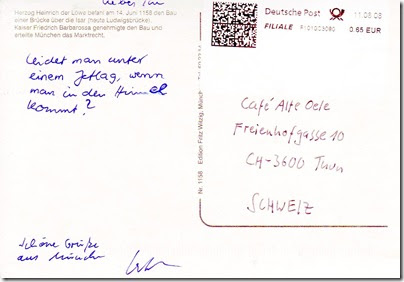 Herzog Heinrich der Löwe befahl am 14. Juni 1158 den Bau
einer Brücke über die Isar (heute Ludwigsbrücke).
Kaiser Friedrich Barbarossa genehmigte den Bau und
erteilte München das Marktrecht.
Leidet man unter
einem Jetlag, wenn
man in den Himmel
kommt?
Schöne Grüße
aus München
Nr. 1158 Edition Fritz Witzig, Münch
Deutsche Post
FILIALE
11.08.08
0.65 EUR
Café Alte Oele
Freienhofgasse 10
CH-3600 Thun
SCHWEIZ